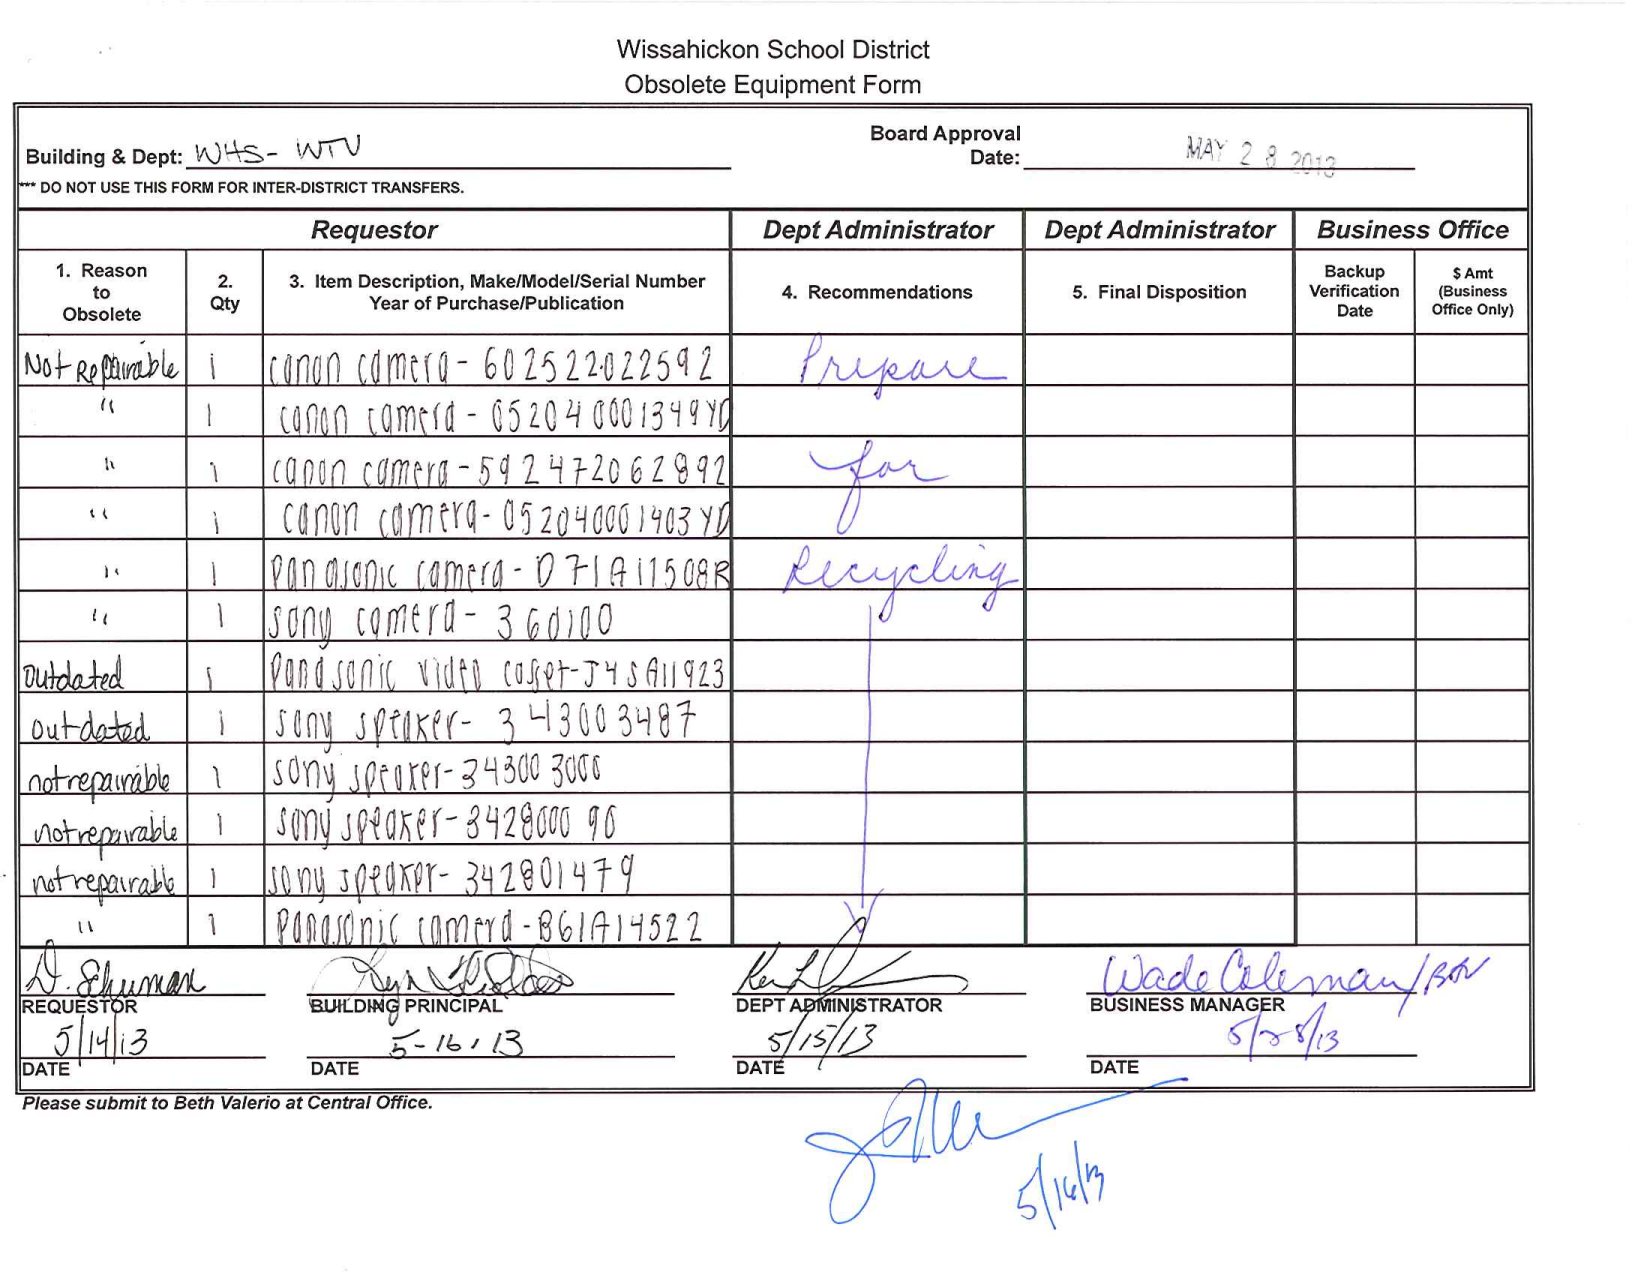 Wissahickon School District
Obsolete Equipment Form
Building & Dept: WHS- WTV
Board Approval
Date: MAY 28 2013
*** DO NOT USE THIS FORM FOR INTER-DISTRICT TRANSFERS.
Requestor Dept Administrator Dept Administrator Business Office
1. Reason to Obsolete 2. Qty 3. Item Description, Make/Model/Serial Number Year of Purchase/Publication 4. Recommendations 5. Final Disposition Backup Verification Date $ Amt (Business Office Only)
Not Repairable 1 canon camera - 602522022592 Prepare
" 1 canon camera - 052040001349YD
" 1 canon camera - 592472062892 for
" 1 canon camera - 052040001403YD
" 1 panasonic camera - D71A11508R Recycling
" 1 sony camera - 360100
outdated 1 panasonic video casset - J45A11923
outdated 1 sony speaker - 343003487
not repairable 1 sony speaker - 343003000
not repairable 1 sony speaker - 342800090
not repairable 1 sony speaker - 342801479
" 1 panasonic camera - B61A14522
D. Schuman Wade Coleman/BAV
REQUESTOR BUILDING PRINCIPAL DEPT ADMINISTRATOR BUSINESS MANAGER
5/14/13 5-16-13 5/15/13 5/28/13
DATE DATE DATE DATE
Please submit to Beth Valerio at Central Office.
5/16/13